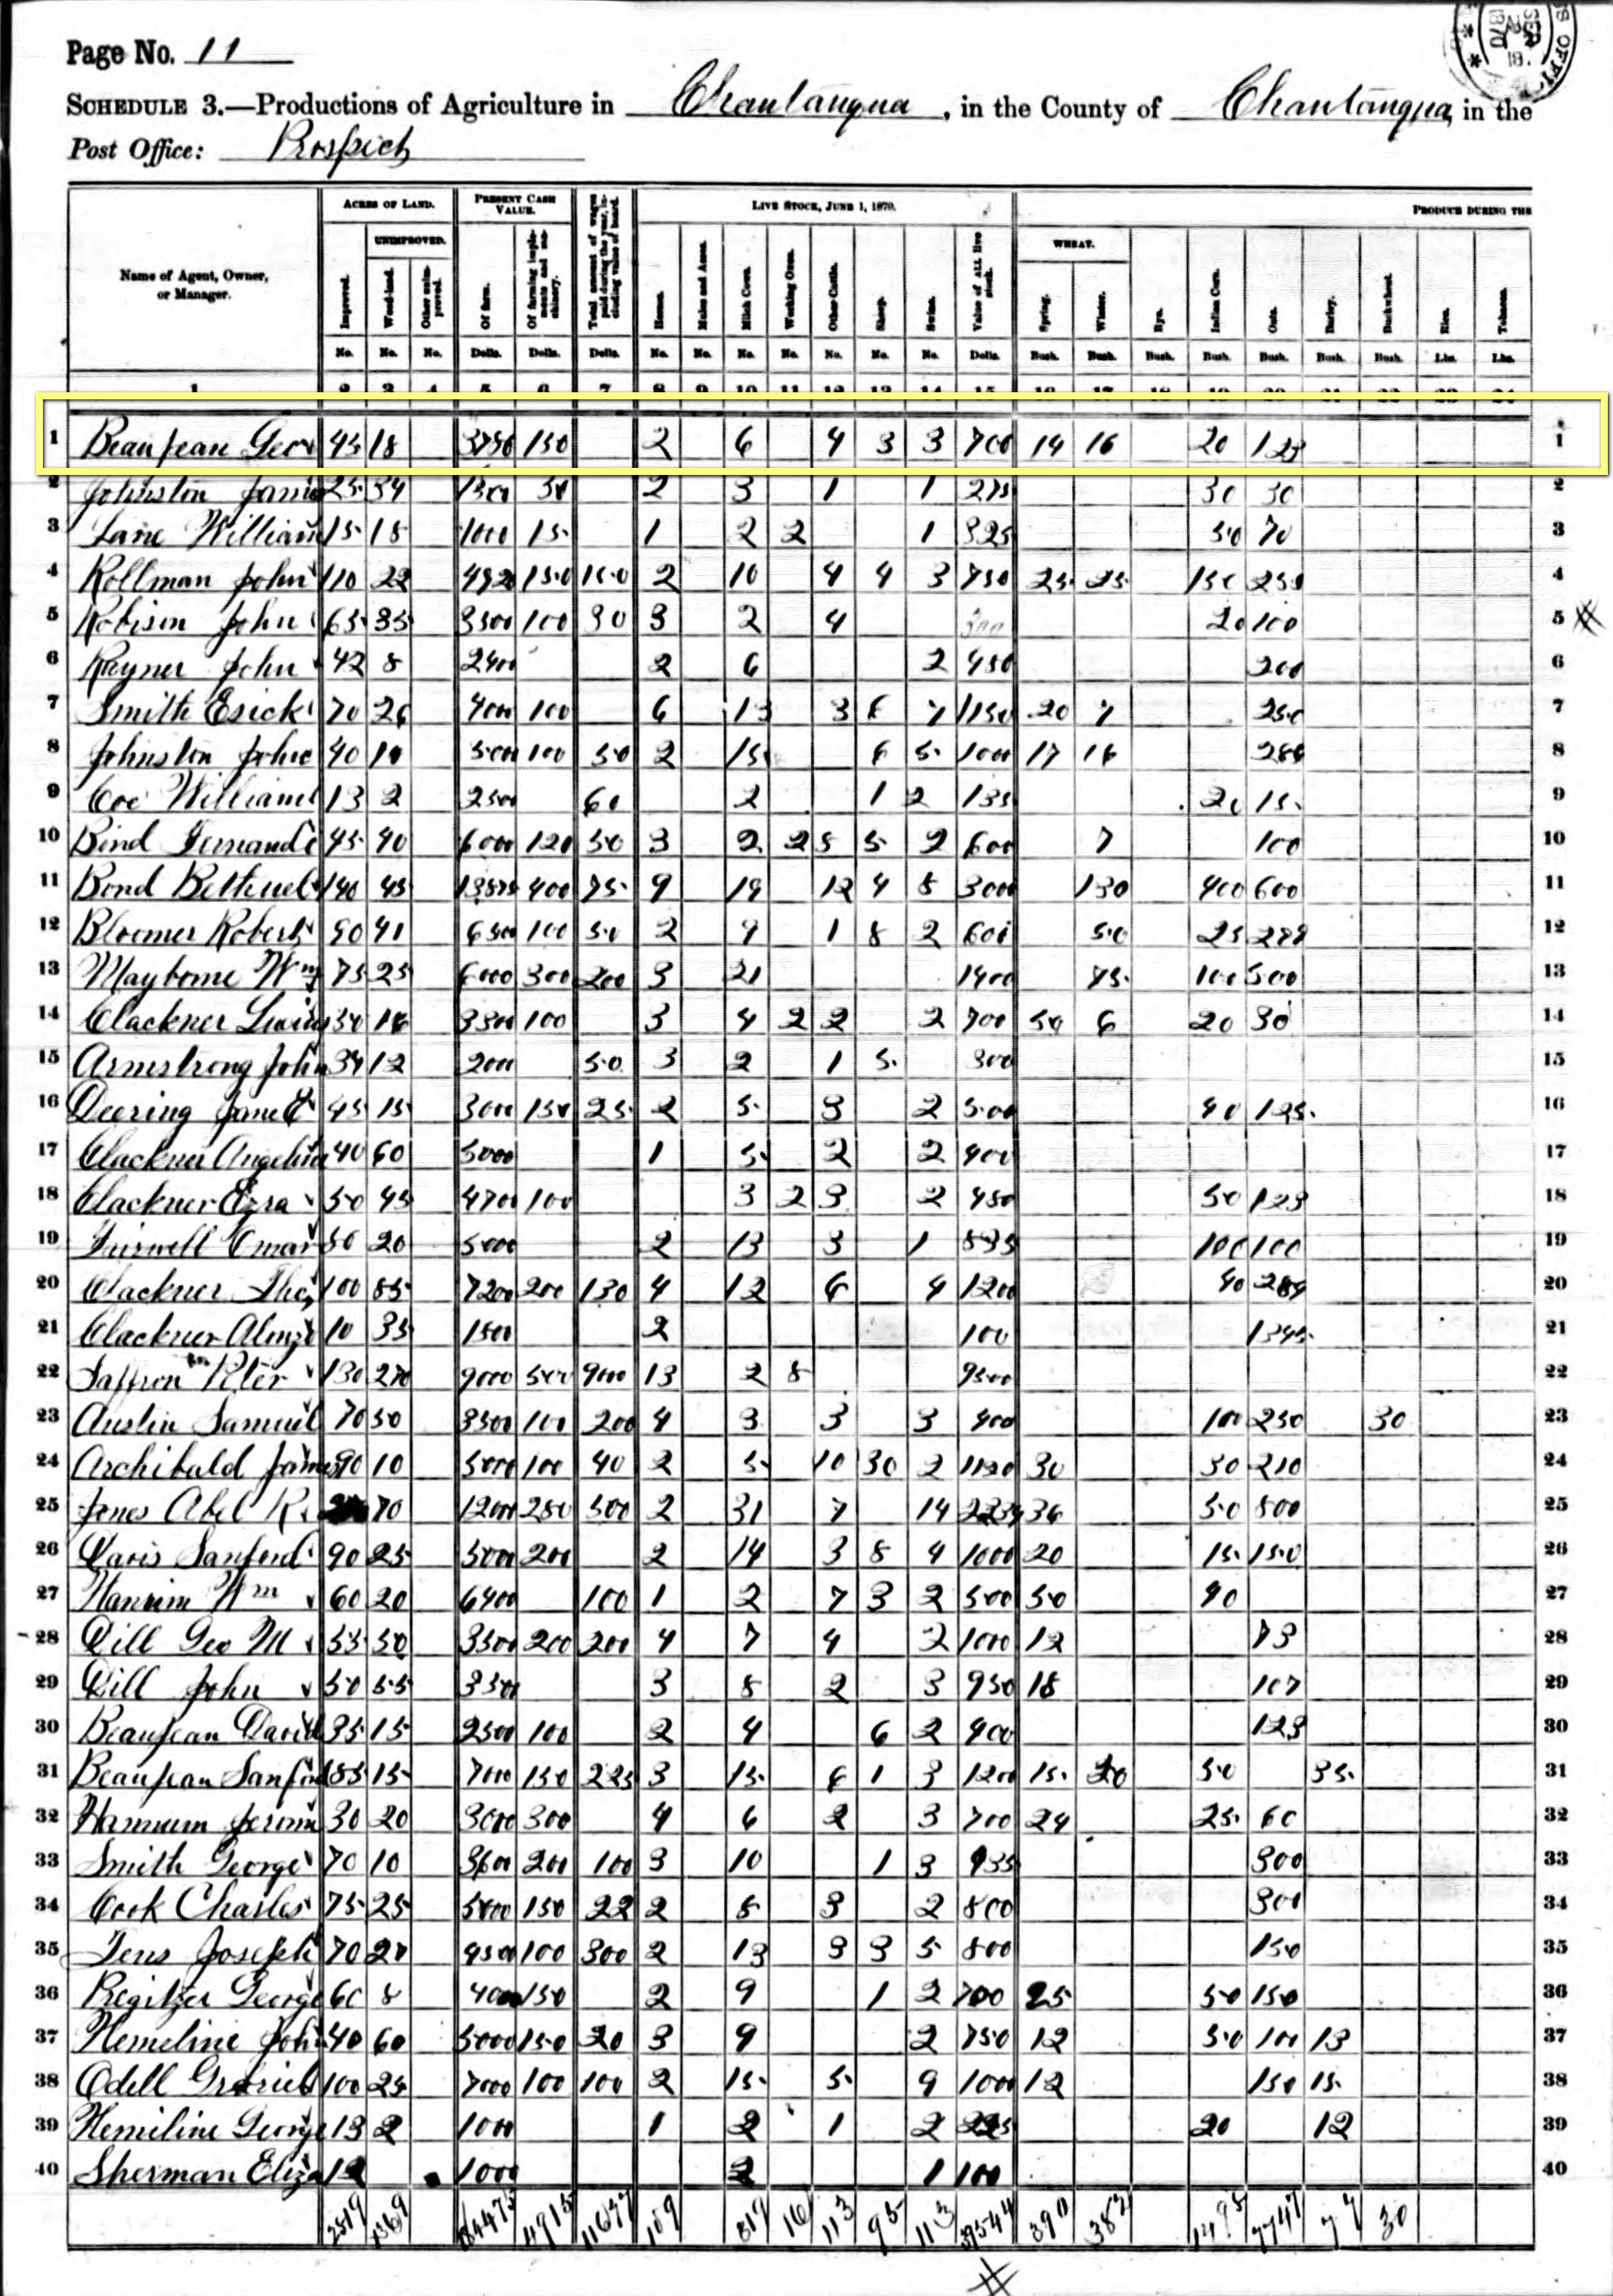 Page No. 11
SCHEDULE 3.—Productions of Agriculture in Chautauqua, in the County of Chautauqua, in the
Post Office: Prospect
ACRES OF LAND. PRESENT CASH VALUE. LIVE STOCK, JUNE 1, 1870. PRODUCE DURING THE
UNIMPROVED. WHEAT.
Name of Agent, Owner, or Manager. Improved. Wood-land. Other unimproved. Of farm. Of farming implements and machinery. Total amount of wages paid during the year, including value of board. Horses. Mules and Asses. Milch Cows. Working Oxen. Other Cattle. Sheep. Swine. Value of ALL live stock. Spring. Winter. Rye. Indian Corn. Oats. Barley. Buckwheat. Rice. Tobacco.
No. No. No. Dolls. Dolls. Dolls. No. No. No. No. No. No. No. Dolls. Bush. Bush. Bush. Bush. Bush. Bush. Bush. Lbs. Lbs.
1 Beaujean Geo 45 18 3750 150 2 6 4 3 3 700 14 16 20 125 1
2 Johnston James 25 34 1500 50 2 3 1 1 275 30 30 2
3 Lane William 15 18 1000 15 1 2 2 1 325 50 70 3
4 Kollman John 110 22 150 150 2 10 4 4 3 750 25 25 150 250 4
5 Robison John 65 35 3500 100 30 3 2 4 300 20 100 5
6 Rayner John 42 8 2400 2 6 2 450 200 6
7 Smith Esick 70 26 4000 100 6 13 3 6 7 1150 20 7 250 7
8 Johnston John 40 10 5000 100 50 2 15 6 5 1000 17 16 8
9 Coe William 13 2 2500 60 2 1 2 135 20 15 9
10 Bind 45 40 6000 120 50 3 2 2 8 5 2 600 7 100 10
11 Bond Bethuel 140 45 400 75 9 19 12 4 8 3000 130 400 600 11
12 Bloomer Robert 90 41 6500 100 50 2 9 1 8 2 600 50 25 12
13 Mayborne Wm 75 25 6000 300 200 3 21 1400 75 100 500 13
14 Clackner 50 16 3500 100 3 4 2 2 2 700 50 6 20 30 14
15 Armstrong John 34 12 2000 50 3 2 1 5 300 15
16 Deering Jane E 45 15 3000 150 25 2 5 3 2 500 40 125 16
17 Clackner Angeline 40 60 5000 1 5 2 2 400 17
18 Clackner Ezra 50 45 4700 100 3 2 3 2 450 50 125 18
19 Omar 50 20 5000 2 13 3 1 835 100 100 19
20 Clackner Thos 100 85 7200 200 130 4 12 6 4 1200 40 284 20
21 Clackner Alonzo 10 35 1500 2 100 1345 21
22 Saffron Peter 130 270 9000 500 900 13 2 8 9500 22
23 Austin Samuel 70 50 3500 100 200 4 3 3 3 400 100 250 30 23
24 Archibald James 90 10 5000 100 40 2 5 10 30 2 1120 30 30 210 24
25 Jones Abel R. 70 12000 250 500 2 31 7 14 36 50 800 25
26 Davis Sanford 90 25 5000 200 2 14 3 8 4 1000 20 15 150 26
27 Hannum Wm 60 20 6400 100 1 2 7 3 2 500 50 40 27
28 Dill Geo M 55 50 3500 200 200 4 7 4 2 1000 12 73 28
29 Dill John 50 55 3500 3 8 2 3 950 18 107 29
30 Beaujean David 35 15 2500 100 2 4 6 2 400 123 30
31 Beaujean Sanford 85 15 7000 150 225 3 15 6 1 3 1200 15 20 50 35 31
32 Hannum Jerome 30 20 3000 300 4 6 2 3 700 24 25 60 32
33 Smith George 70 10 3600 200 100 3 10 1 3 935 300 33
34 Cook Charles 75 25 5000 150 22 2 8 3 2 800 300 34
35 Joseph 70 20 4500 100 300 2 13 3 3 5 800 150 35
36 George 60 8 4000 150 2 9 1 2 700 25 50 150 36
37 Hemeline John 40 60 5000 150 20 3 9 2 750 12 50 100 13 37
38 Odell 100 25 7000 100 100 2 15 5 9 1000 12 150 15 38
39 Hemiline George 13 2 1000 1 2 1 2 225 20 12 39
40 Sherman Eliza 12 1000 2 1 100 40
2519 1369 4915 109 319 16 113 95 113 39544 390 382 1495 7747 77 30